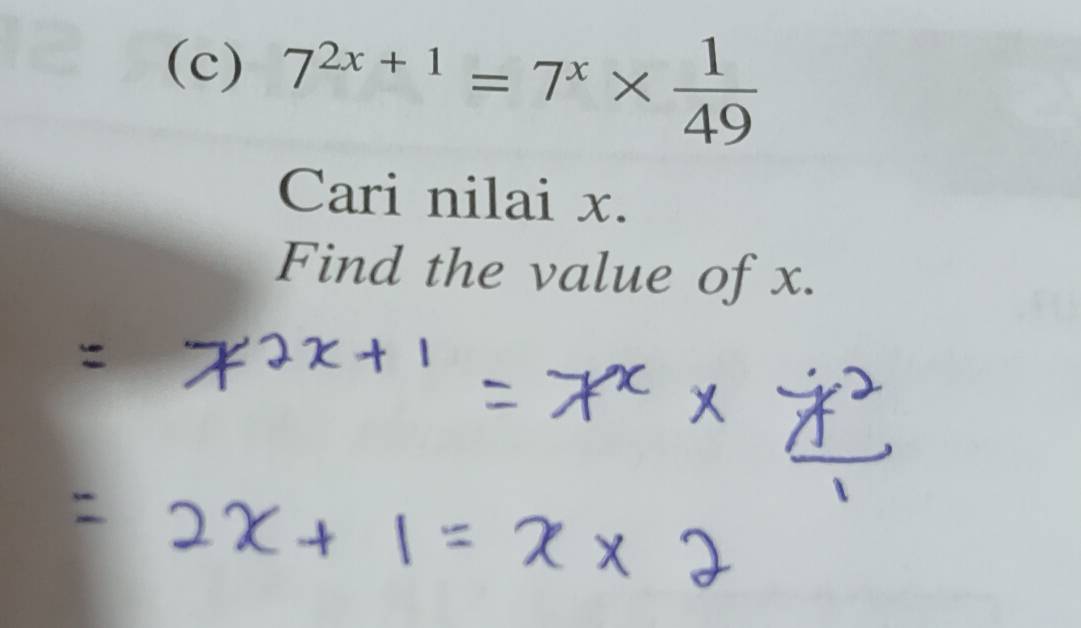 (c) 7^{2x + 1} = 7^x × \frac{1}{49}
Cari nilai x.
Find the value of x.
= 7^{2x + 1} = 7^x × \frac{7^2}{1}
= 2x + 1 = x × 2